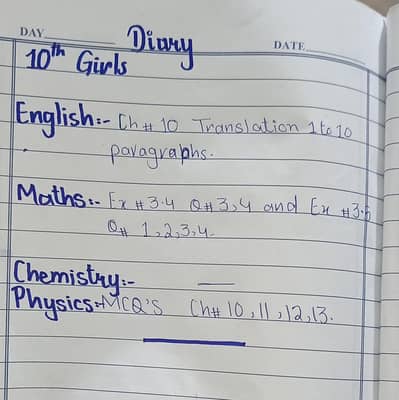 DAY Diary DATE
10th Girls
English:- Ch# 10 Translation 1 to 10
paragraphs.
Maths:- Ex # 3.4 Q# 3,4 and Ex #3.5
Q# 1,2,3,4.
Chemistry:- —
Physics:- MCQ'S Ch# 10, 11, 12, 13.